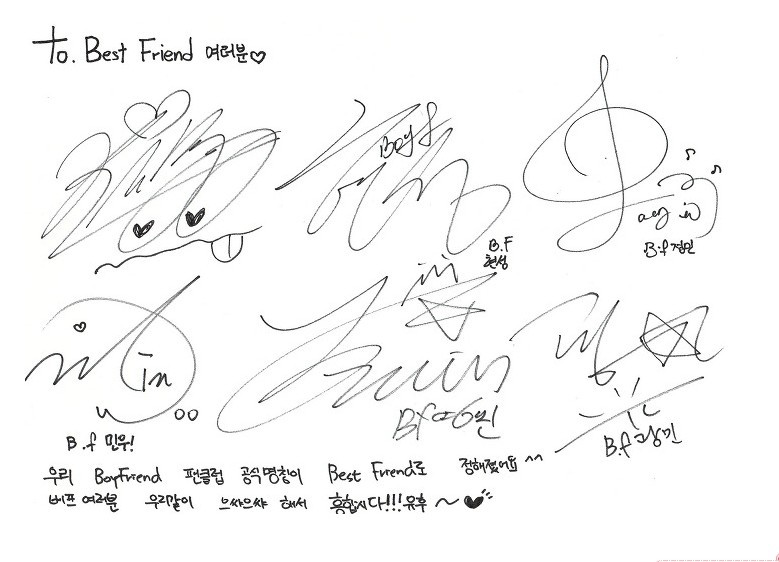 To. Best Friend 여러분♡
Boy f
B.F
현성
B.f 정민
in
B.f 민우!
Bf 영민
B.f 광민
우리 BoyFriend 팬클럽 공식명칭이 Best Friend로 정해졌어요 ^^
버프 여러분 우리같이 으쌰으쌰 해서 흥합시다!!! 유후~♥